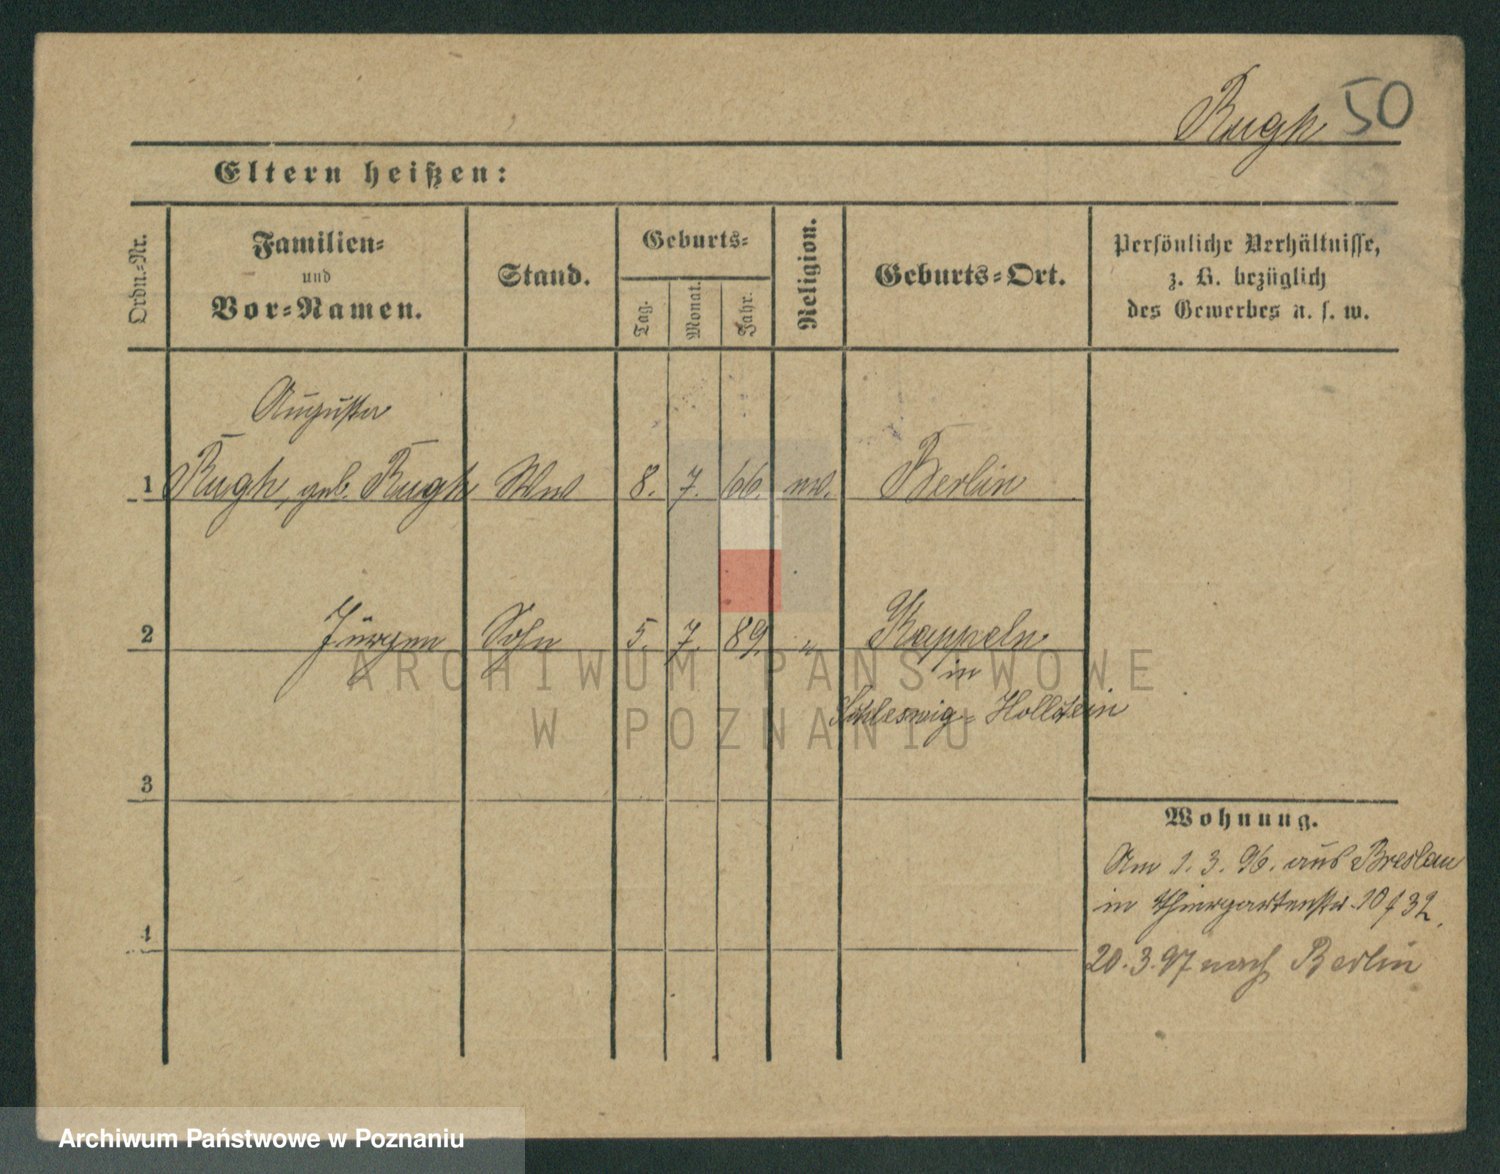 Rugh 50
Eltern heißen:
Ordn.-Nr.
Familien-
und
Vor-Namen.
Stand.
Geburts-
Tag.
Monat.
Jahr.
Religion.
Geburts-Ort.
Persönliche Verhältnisse,
z. B. bezüglich
des Gewerbes u. s. w.
Auguste
1 Rugh, geb. Rugh Wwe 8. 7. 66. ev. Berlin
2 Jürgen Sohn 5. 7. 89. " Kappeln
in
Schleswig-Hollstein
3
4
Wohnung.
Am 1. 3. 96. aus Breslau
in Thiergartenstr. 10
20.3.97 nach Berlin
ARCHIWUM PAŃSTWOWE
W POZNANIU
Archiwum Państwowe w Poznaniu